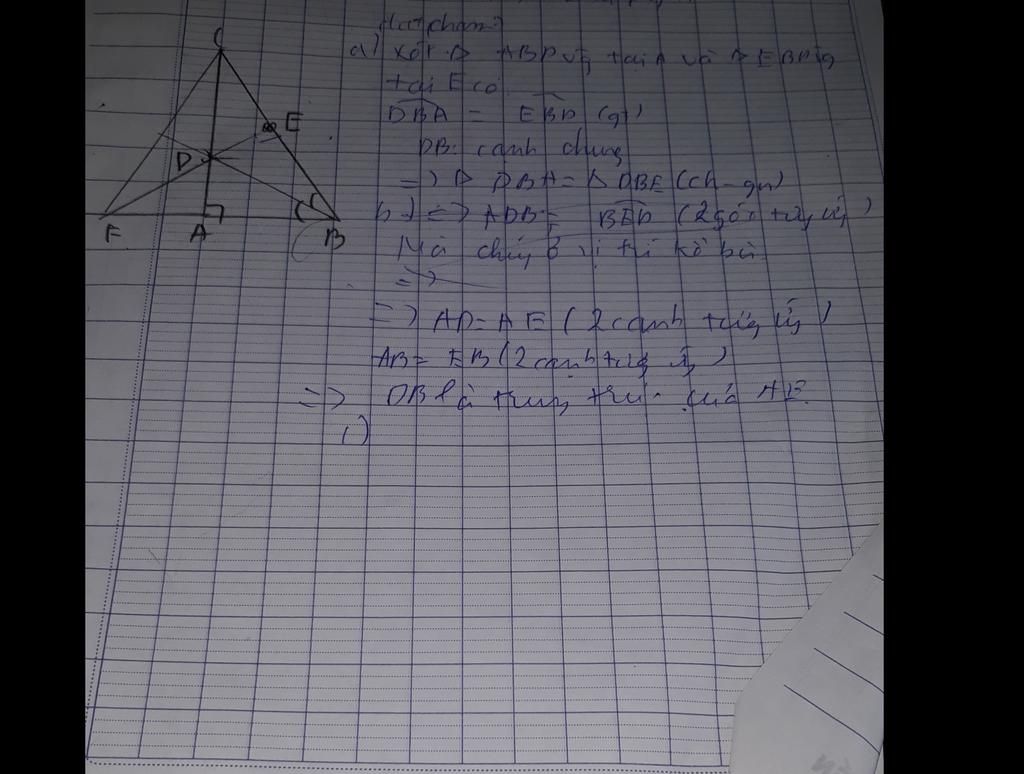 C
E
D
F
A
B
a) Xét Δ ABD vg tại A và Δ EBD vg
tại E có
DBA = EBD (gt)
DB: cạnh chung
=> Δ DBA = Δ DBE (ch-gn)
b) => ADB = BED (2 góc tg ứg)
Mà chúg ở vị trí kề bù
=>
=> AD = AE (2 cạnh tứg ứg)
AB = EB (2 cạnh tứg ứg)
=> DB là trug trực của AE